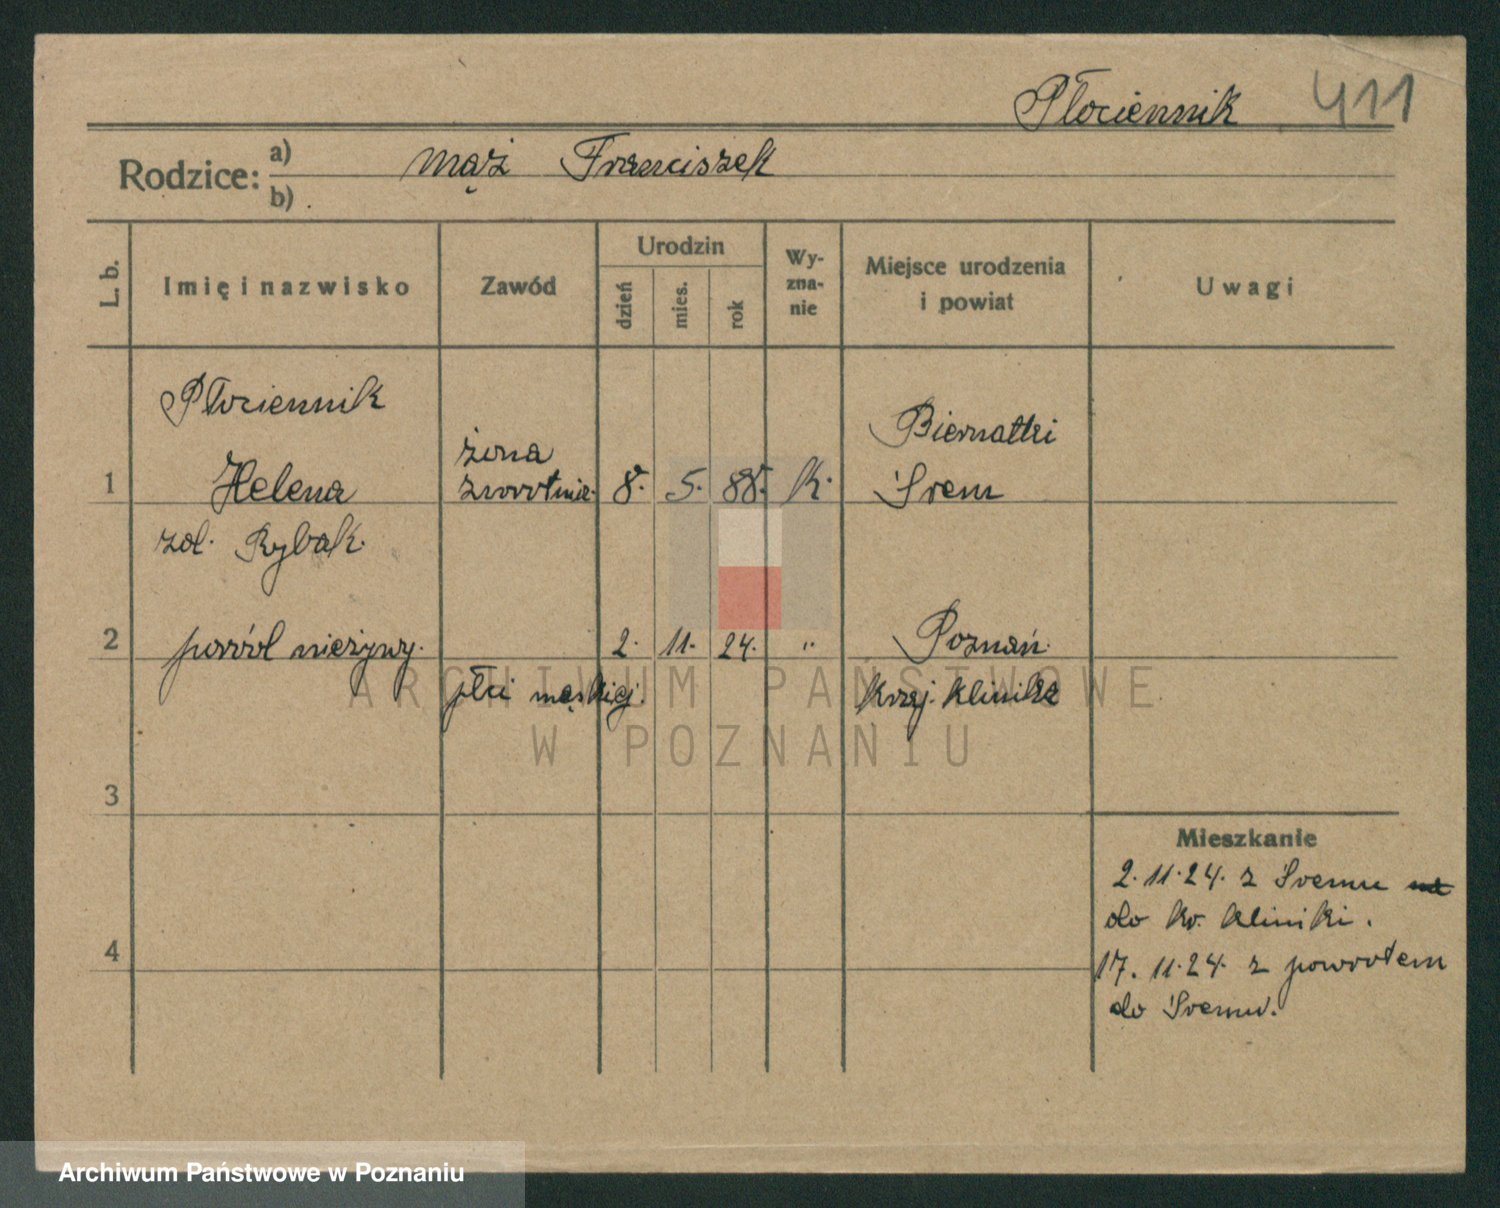 Płociennik 411
Rodzice: a) mąż Franciszek
b)
L. b.
Imię i nazwisko
Zawód
Urodzin
dzień
mies.
rok
Wy-
zna-
nie
Miejsce urodzenia
i powiat
Uwagi
Płociennik
Biernatki
żona
1 Helena zwrotnic. 8. 5. 88. k. Śrem
zd. Rybak.
2 poród nieżywy. 2. 11. 24. " Poznań.
płci męskiej. Kraj. Klinika
ARCHIWUM PAŃSTWOWE
W POZNANIU
3
Mieszkanie
2.11.24. z Śremu
do Kr. Kliniki.
4
17.11.24. z powrotem
do Śremu.
Archiwum Państwowe w Poznaniu